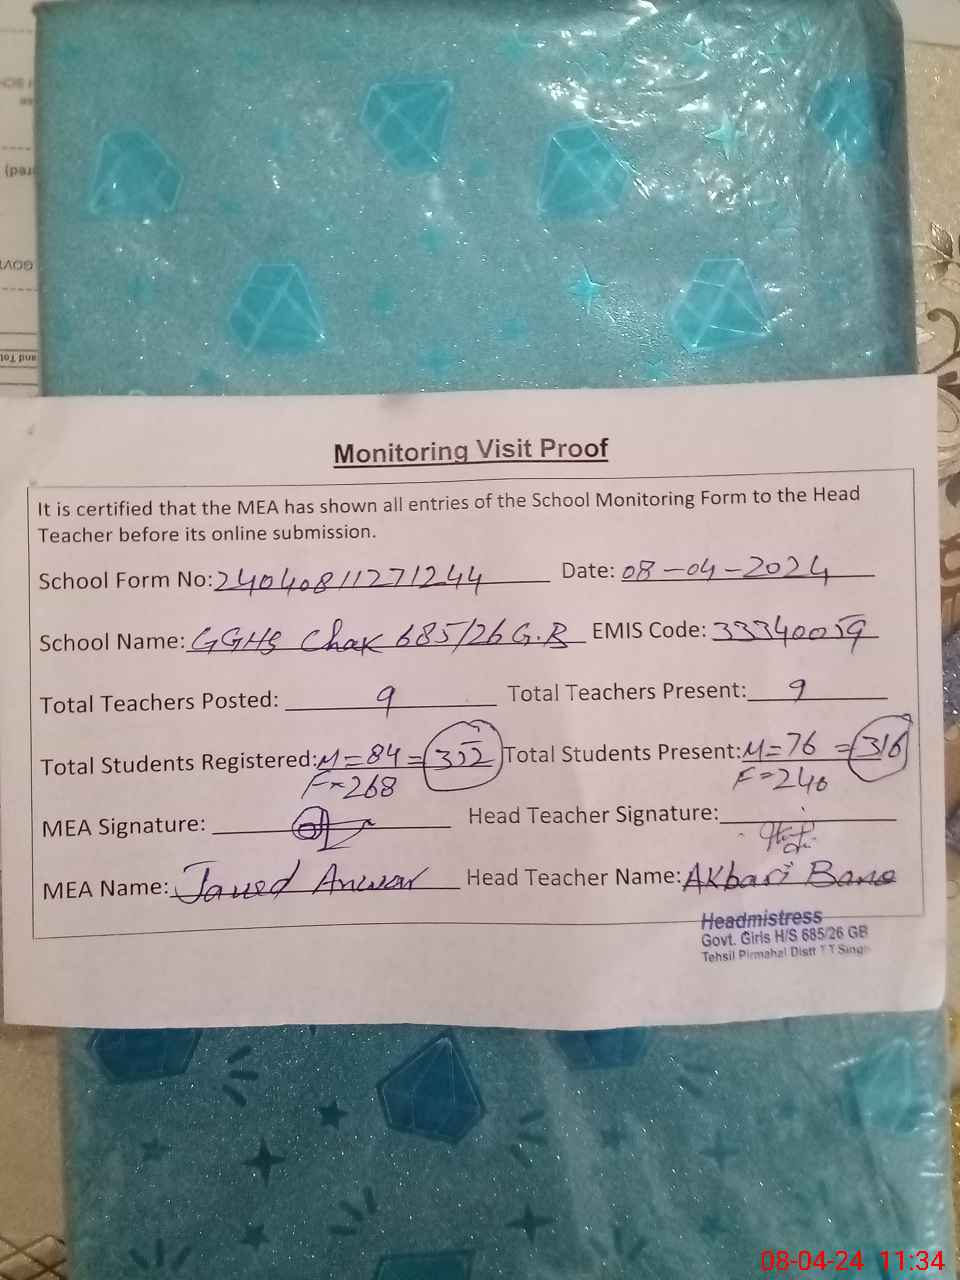 Monitoring Visit Proof
It is certified that the MEA has shown all entries of the School Monitoring Form to the Head
Teacher before its online submission.
School Form No: 24040811271244 Date: 08-04-2024
School Name: GGHS Chak 685/26 G.B EMIS Code: 33340059
Total Teachers Posted: 9 Total Teachers Present: 9
Total Students Registered: M=84 = 352 Total Students Present: M=76 = 316
F=268 F=240
MEA Signature: Head Teacher Signature:
MEA Name: Javed Anwar Head Teacher Name: Akbari Bano
Headmistress
Govt. Girls H/S 685/26 GB
Tehsil Pirmahal Distt T T Singh
08-04-24 11:34